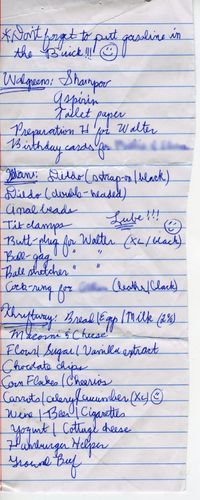 *Don't forget to put gasoline in
the Buick!!!
Walgreens: Shampoo
Aspirin
Toilet paper
Preparation H for Walter
Birthday cards for
Dildo (strap-on/black)
Dildo (double-headed)
Anal beads
Tit clamps
Lube!!!
Butt-plug for Walter (XL/black)
Ball-gag " "
Ball stretcher " "
Cock-ring for (leather/black)
Thriftway: Bread/Egg/Milk (2%)
Macaroni & Cheese
Flour/Sugar/Vanilla extract
Chocolate chips
Corn Flakes/Cheerios
Carrots/celery/cucumber (XL)
Wine/Beer/Cigarettes
Yogurt/Cottage cheese
Hamburger Helper
Ground Beef